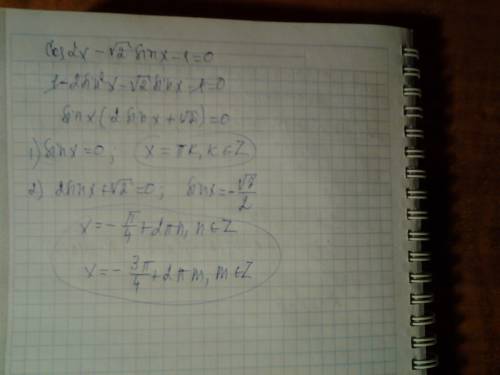 cos2x - √2 sinx - 1 = 0
1 - 2sin²x - √2 sinx - 1 = 0
sinx(2sinx + √2) = 0
1) sinx = 0; x = πk, k ∈ Z
2) 2sinx + √2 = 0; sinx = -√2/2
x = -π/4 + 2πn, n ∈ Z
x = -3π/4 + 2πm, m ∈ Z